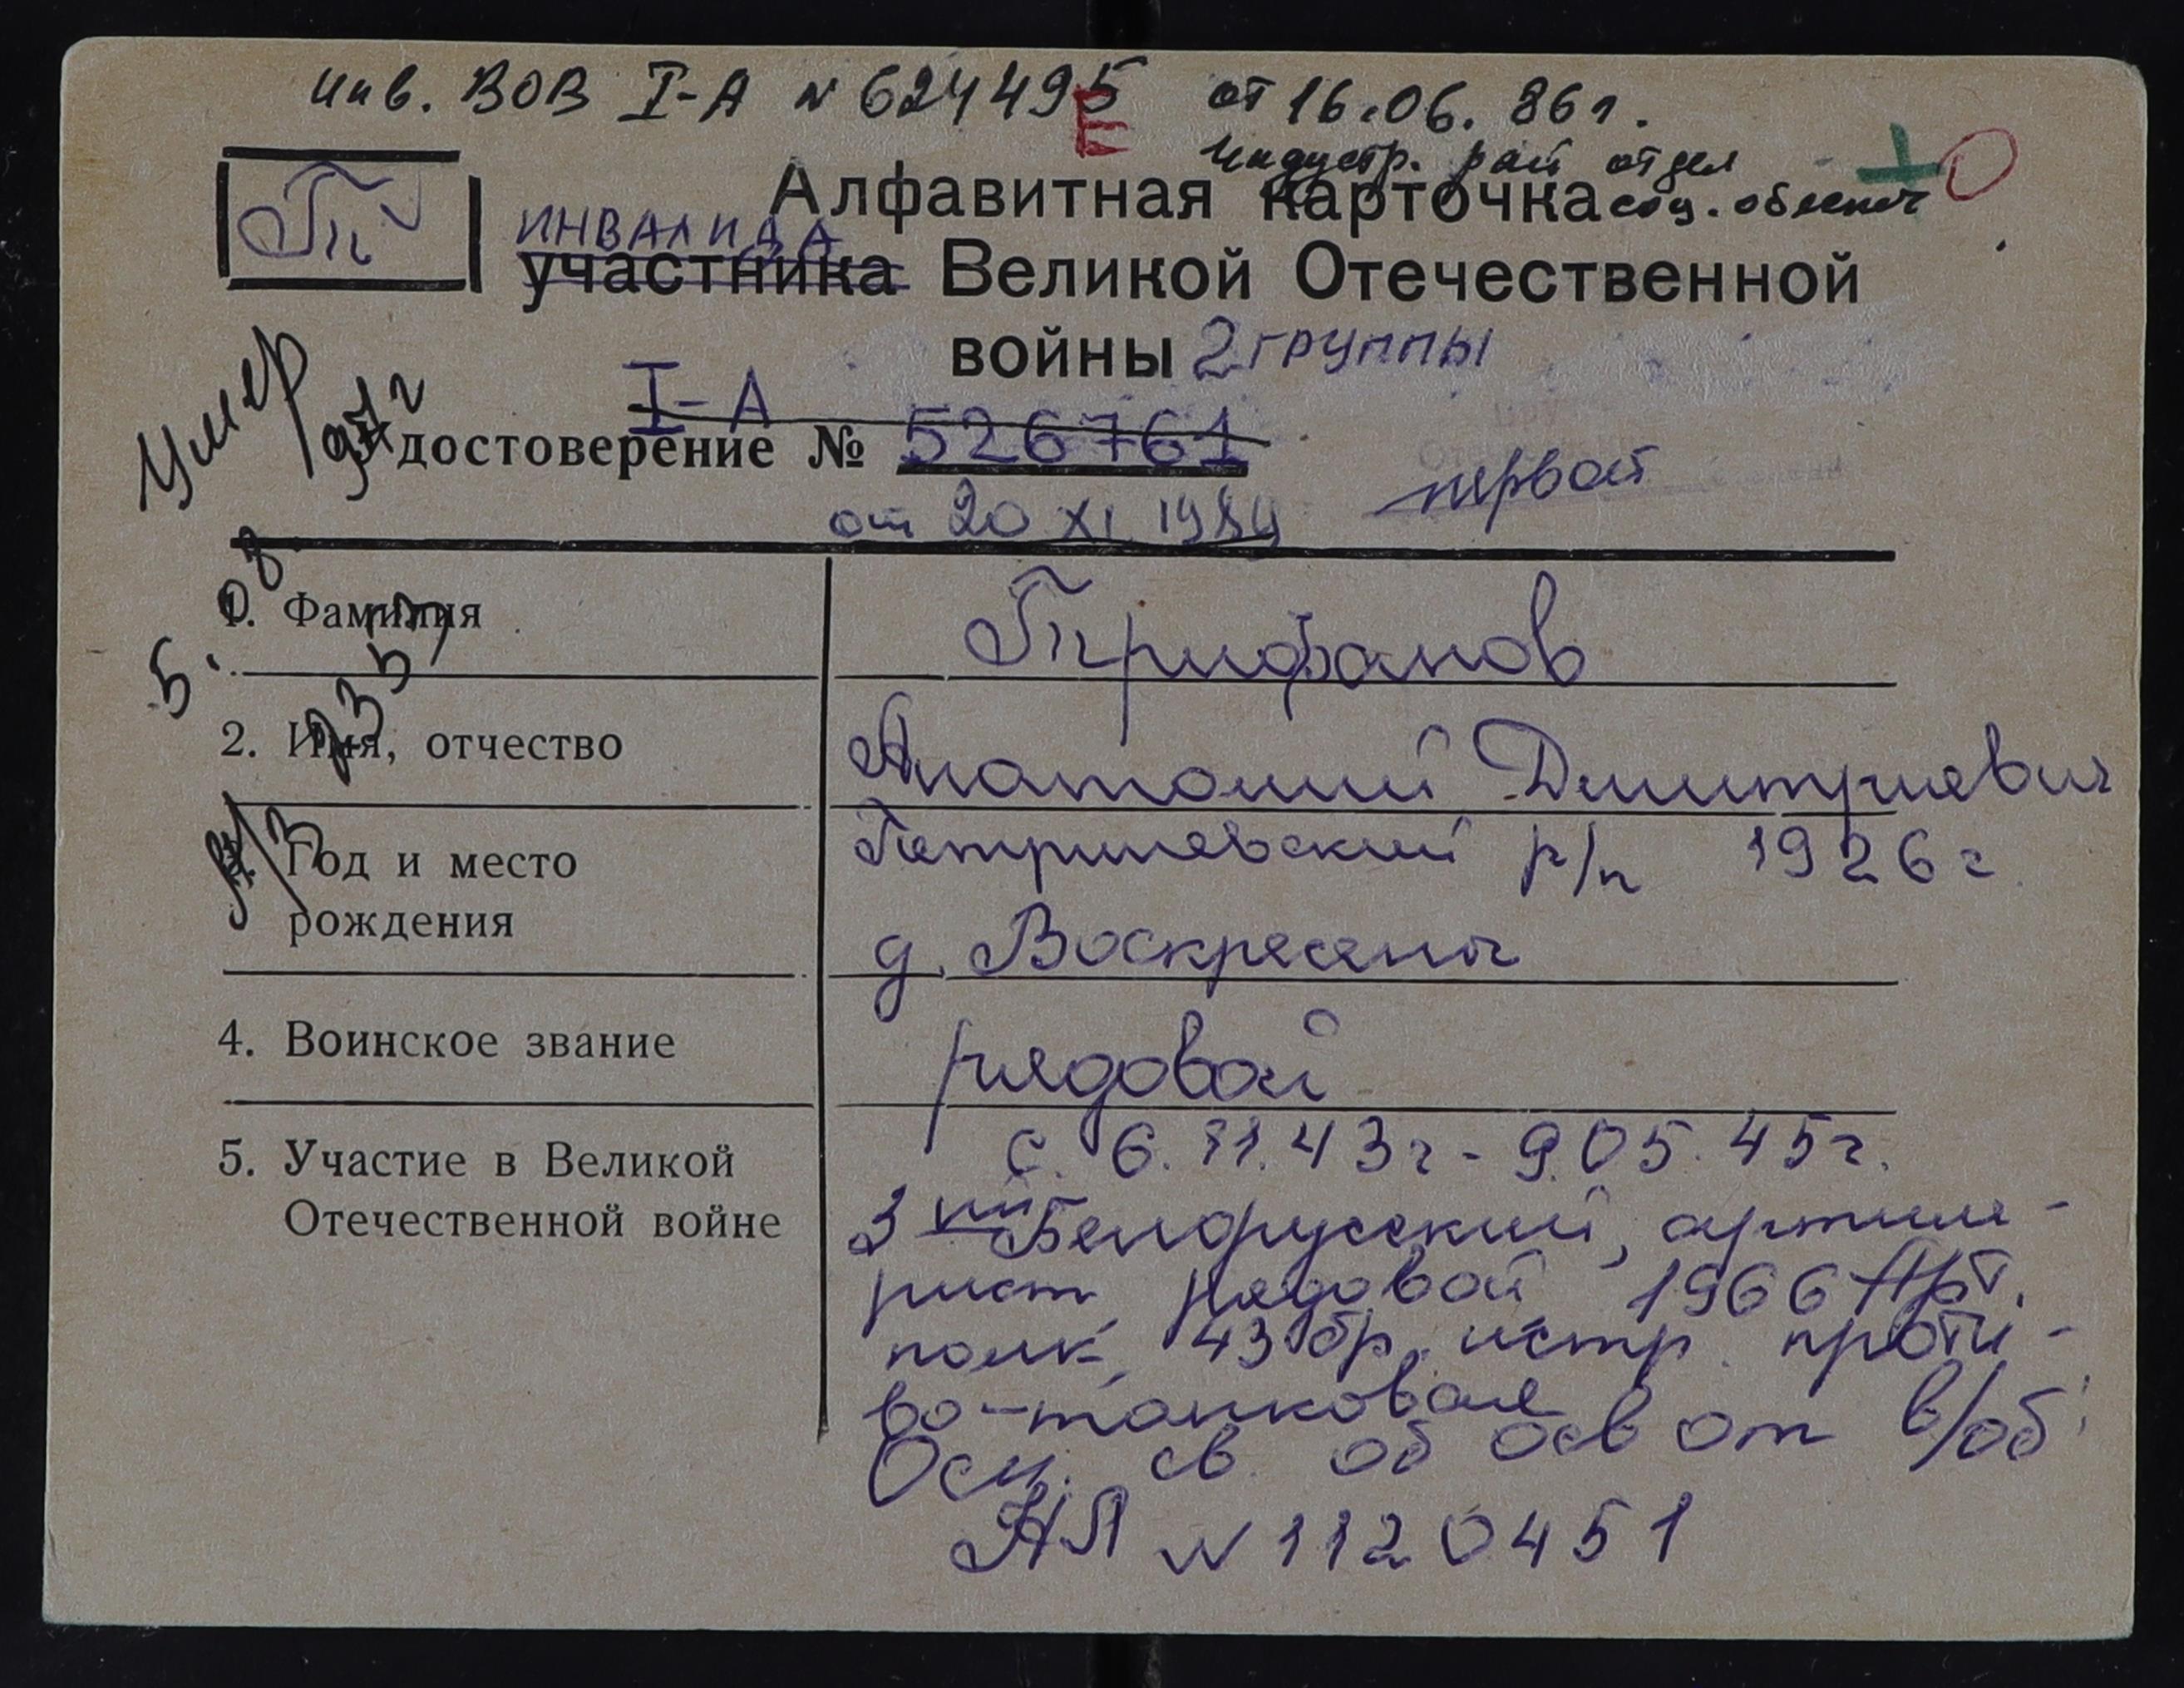 инв. ВОВ I-А № 624495 от 16.06.86г.
Е
Индустр. рай отдел
соц. обеспеч
Т
Алфавитная карточка
инвалида
участника Великой Отечественной
войны 2 группы
I-А
Удостоверение № 526761
первой
от 20 XI 1984
Умер
5.08.
1. Фамилия Трифанов
2. Имя, отчество Анатолий Дмитриевич
3. Год и место рождения Петриневский р/н 1926г.
д. Воскресень
4. Воинское звание рядовой
5. Участие в Великой Отечественной войне с. 6.11.43г - 9.05.45г.
3ий Белорусский, артиле-
рист, рядовой 1966 Арт.
полк, 43 бр. истр. проти-
во-танковая
Осн. св. об осв от в/об
НЛ № 1120451